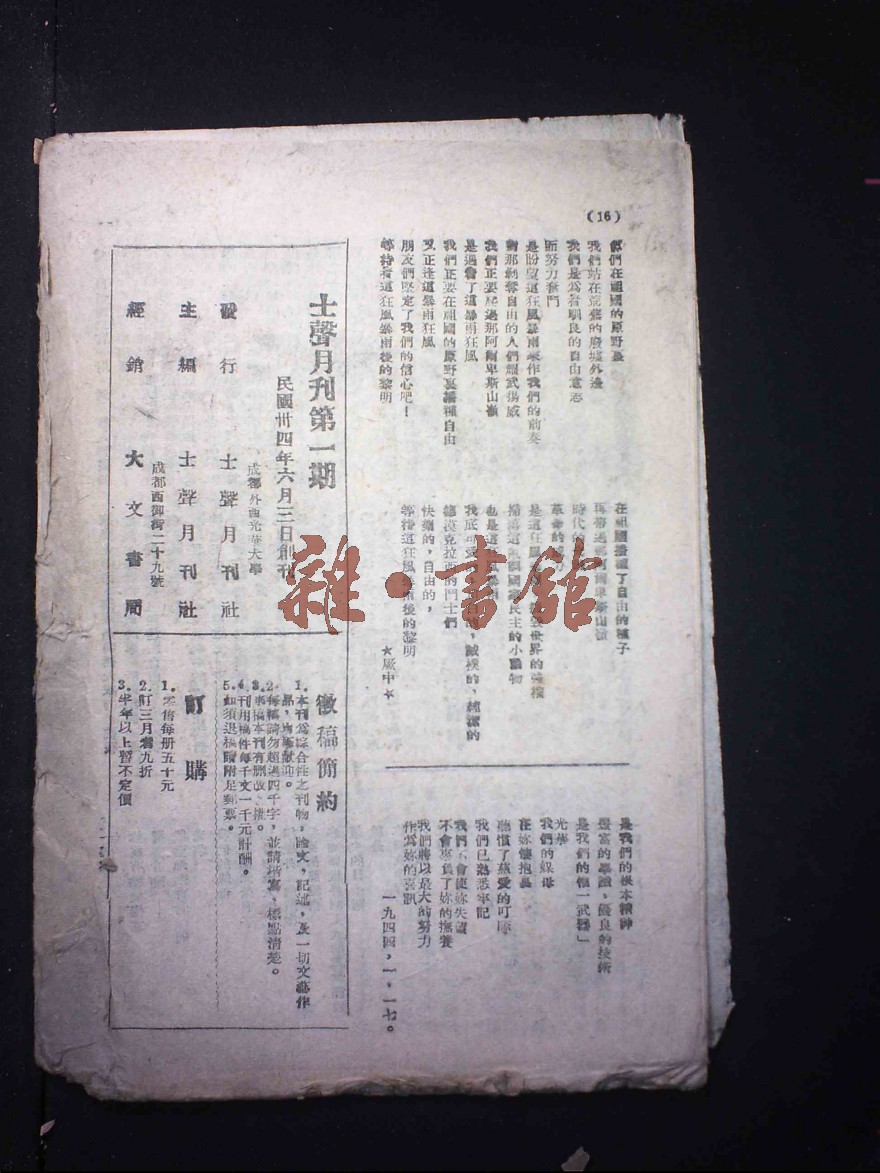 (16)
我們站在荒蕪的廢墟外邊
我們是為着馴良的自由意志
而努力奮鬥
是盼望這狂風暴雨來作我們的前奏
對那剝奪自由的人們耀武揚威
我們正要爬過那阿爾卑斯山嶺
是過會了這暴雨狂風
我們正要在祖國的原野裏播種自由
又正逢這暴雨狂風
朋友們堅定了我們的信心吧!
等待着這狂風暴雨後的黎明
在祖國播種了自由的種子
再帶過那阿爾卑斯山嶺
時代的
革命的
是這狂風
民主的小動物
也是這
誠樸的,純潔的
德漠克拉西的鬥士們
快樂的,自由的,
等待這狂風暴雨後的黎明
★厥中★
是我們的根本精神
豐富的學識,優良的技術
是我們的唯一武器」
光華
我們的保母
在妳懷抱裏
聽慣了慈愛的叮嚀
我們已熟悉牢記
我們不會使妳失望
不會辜負了妳的撫養
我們將以最大的努力
作為妳的喜訊
一九四四,一,一七。
士聲月刊第一期
民國卅四年六月三日創刊
成都外西光華大學
發行 士聲月刊社
主編 士聲月刊社
成都西御街二十九號
經銷 大文書局
徵稿簡約
1.本刊為綜合性之刊物,論文,記述,及一切文藝作
品,均極歡迎。
2.每稿請勿超過四千字,並請楷寫,標點清楚。
3.來稿本刊有刪改權。
4.刊用稿件每千文一千元計酬。
5.如須退稿請附足郵票。
訂購
1.零售每冊五十元
2.訂三月者九折
3.半年以上暫不定價
雜·書館